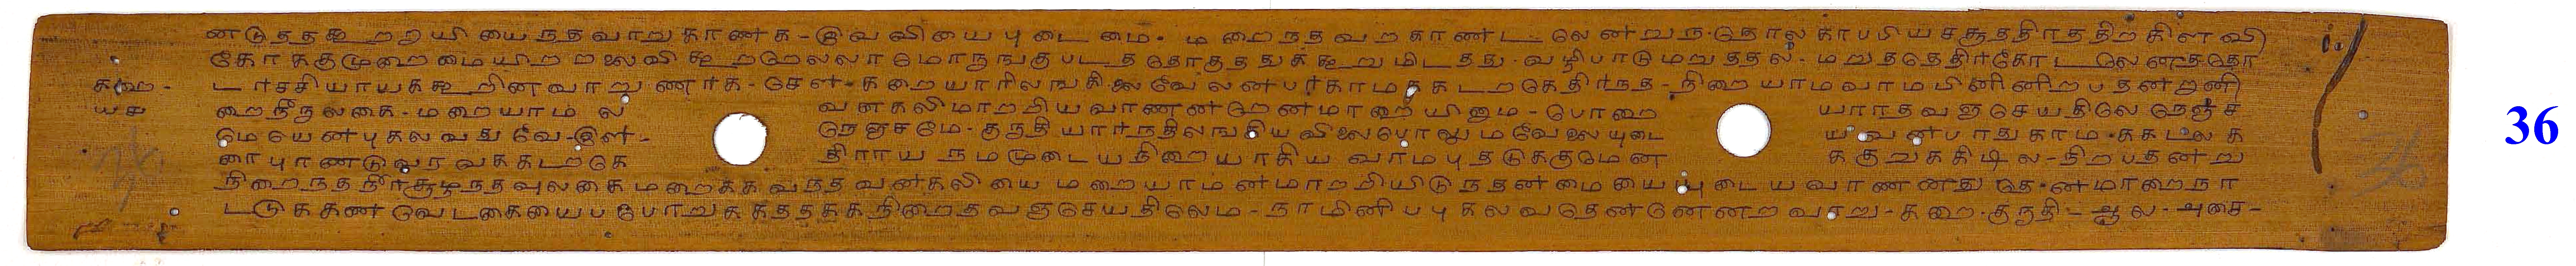 னடுததகூறறியியையநதவாறுகாணக - இவவியையபுடைமை. டிறைநதவறகாணடலேனறுந.தொலகாபபியசசூததிரததிறகிளவி
கோககுமுறைமையிறறலைவிகூறறேலலாமொருஙகுபடததொகுததுககூறுமிடதது - வழிபாடுமறுததல - மறுததெதிர்கோடலெனசதொ
டர்சசியாயககூறினவாறுணர்க - சேள - கறையாரிலஙகிலைவேலனபர்காமககடறகெதிர்நத - நிறையாமவாமபினினிறபதனறனி
கஅ -
யச றைநீநலகை - மறையாமல வனகலிமாறறியவாணனறெனமாறையினும - பொறை யாரதவஞசெயதிலேநெஞச
மேயெனபுகலவதுவே - இள - நெஞசமே - குநதியார்நதிலஙகியவிலைபோலுமவேலையுடை யவனபாதுகாமககடலக
ரைபுாணடுவரவககடறகெ திராயநமமுடையநிறையாகியவாமபுதடுககுமென ககுறுககிடில - நிறபதனறு
நிறைநதநீர்சூழநதவுலகைமறைககவநதவனகலியைமறையாமனமாறறியிடுநதனமையையுடையவாணனதுதெனமாறைநா
டடுககணவேடகையைபபோறுககததககநிறைதவஞசெயதிலெம - நாமினிபபுகலவதெனனெனறவாறு - கறை - குநதி - ஆல - அசை -
36